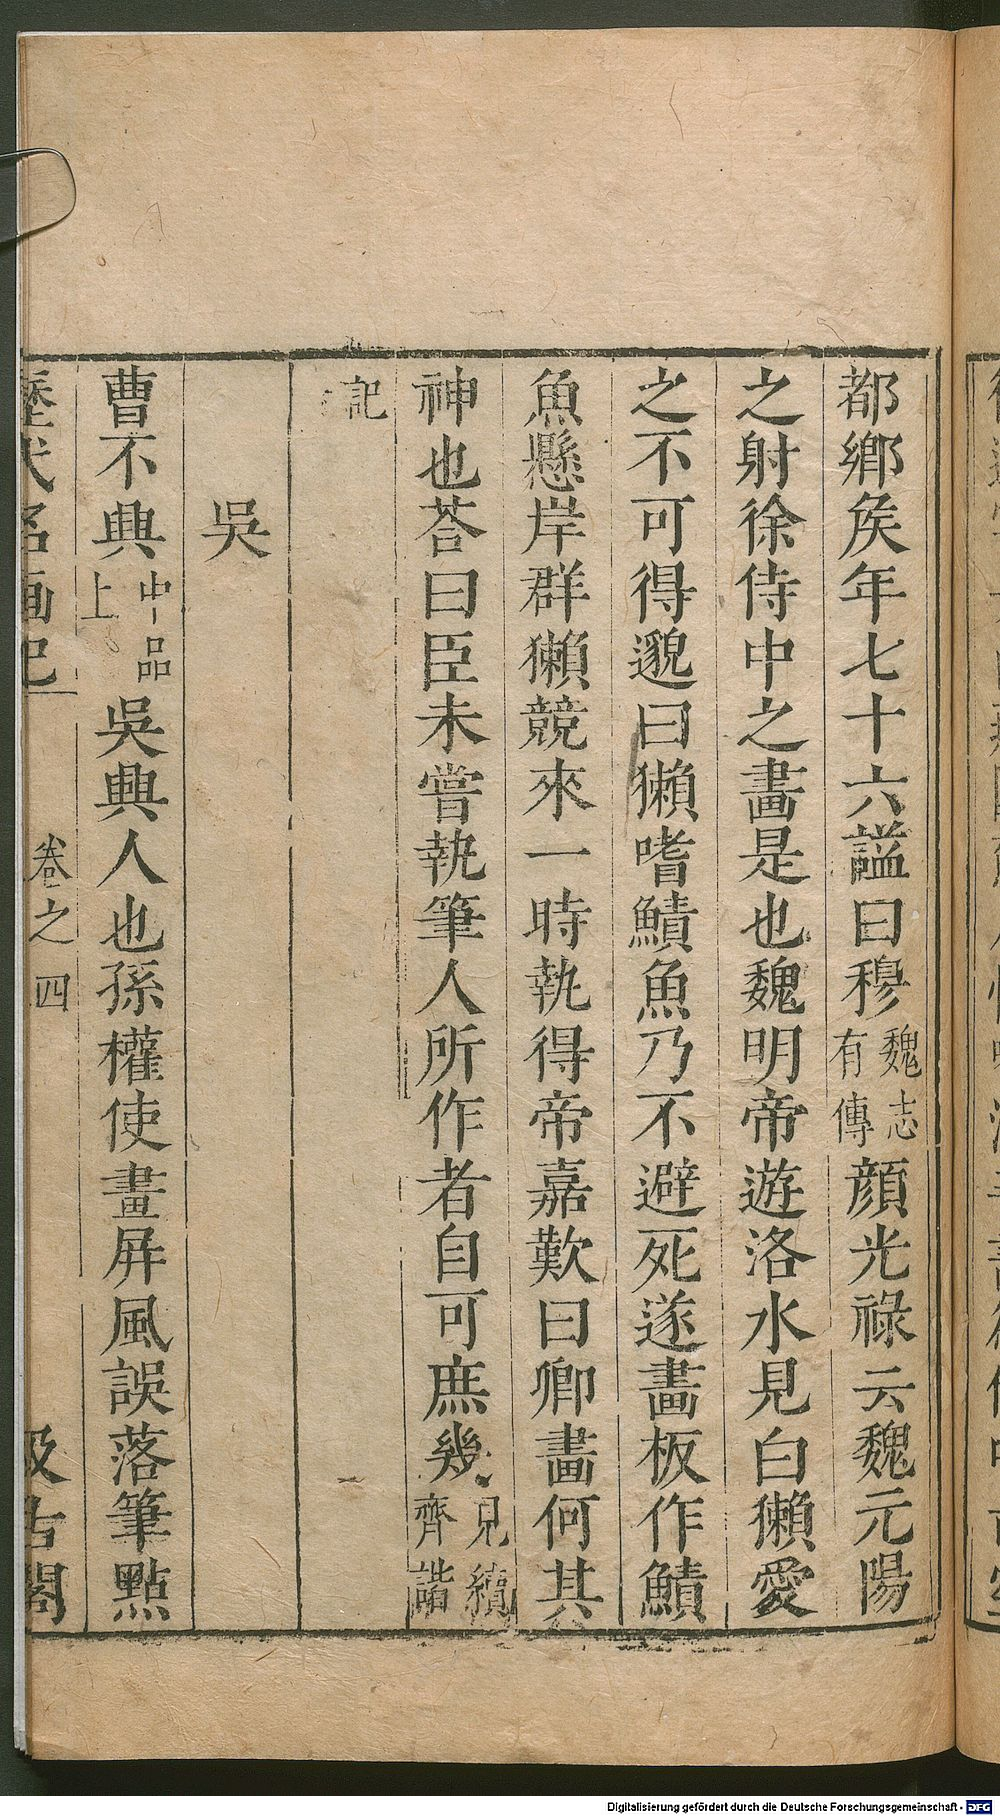 都鄉矦年七十六謚曰穆魏志有傳顔光祿云魏元陽
之射徐侍中之畵是也魏明帝遊洛水見白獺愛
之不可得邈曰獺嗜鯖魚乃不避死遂畵板作鯖
魚懸岸群獺競來一時執得帝嘉歎曰卿畵何其
神也荅曰臣未嘗執筆人所作者自可庶幾見續齊諧
記
吳
曹不興中品上吳興人也孫權使畫屏風誤落筆點
歷代名画記 卷之四 汲古閣
Digitalisierung gefördert durch die Deutsche Forschungsgemeinschaft - DFG